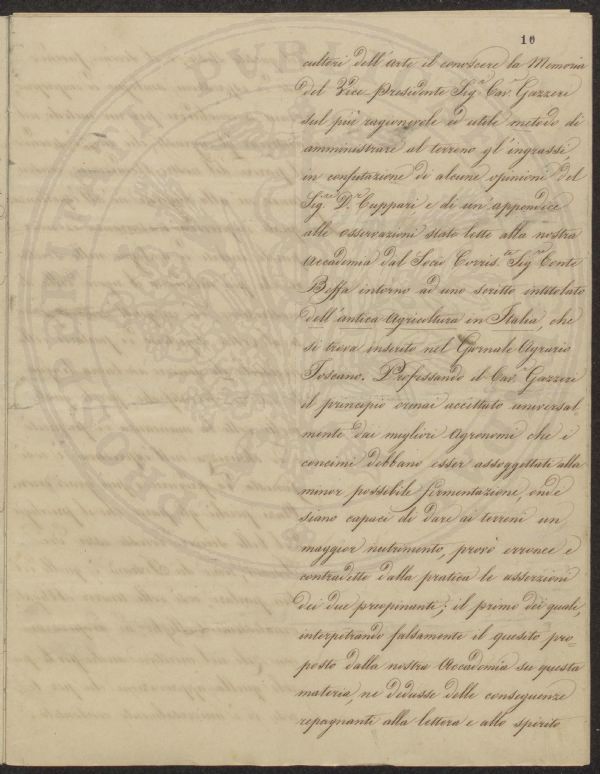 10
cultori dell'arte il conoscere la Memoria
del Vice-Presidente Sig.r Cav.r Gazzeri
sul più ragionevole ed utile metodo di
amministrare al terreno gl'ingrassi,
in confutazione di alcune opinioni del
Sig.re D.r Cuppari e di un'appendice
alle osservazioni state lette alla nostra
Accademia dal Socio Corris.te Sig.r Conte
Beffa intorno ad uno scritto intitolato
dell'antica Agricoltura in Italia, che
si trova inserito nel Giornale Agrario
Toscano. Professando il Cav.r Gazzeri
il principio ormai accettato universal
mente dai migliori Agronomi che i
concimi debbano esser assoggettati alla
minor possibile fermentazione, onde
siano capaci di dare ai terreni un
maggior nutrimento, provò erronee e
contradette dalla pratica le asserzioni
dei due preopinanti; il primo dei quale,
interpetrando falsamente il quesito pro=
posto dalla nostra Accademia su questa
materia, ne dedusse delle conseguenze
repugnanti alla lettera e allo spirito